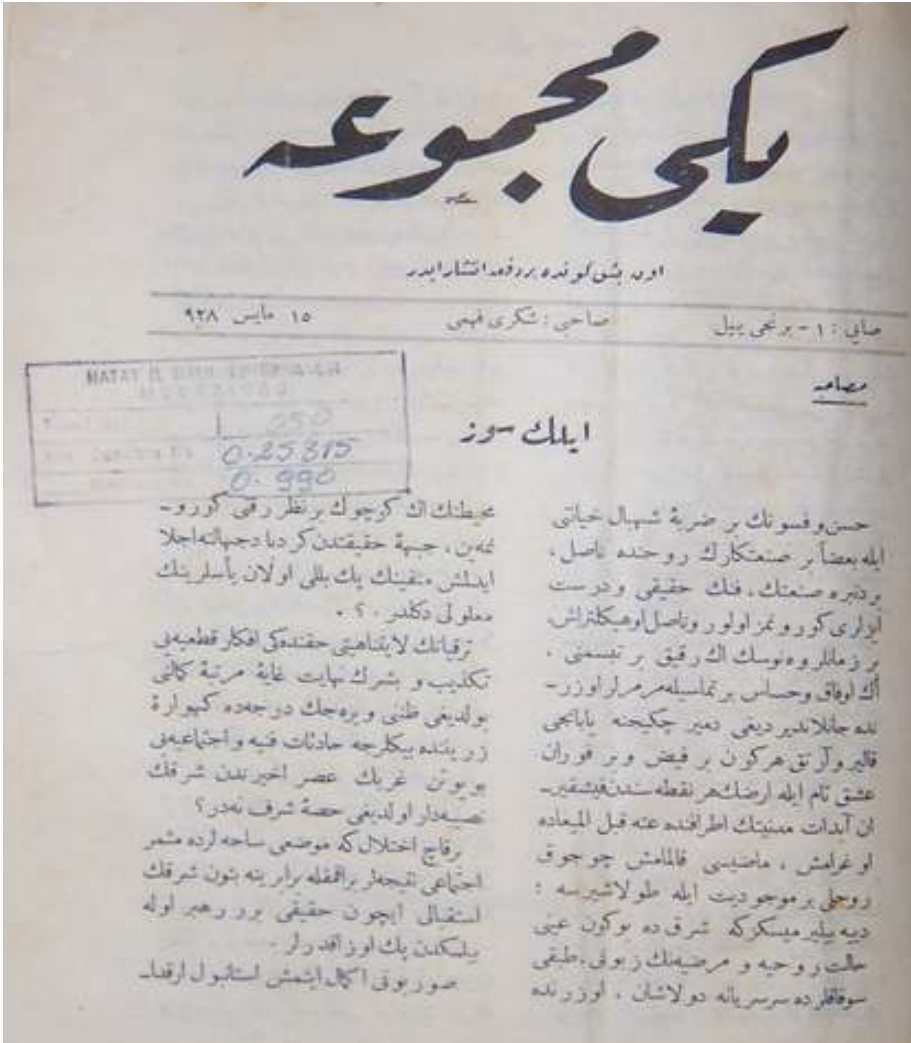 يكى مجموعه
اون بش كونده بر دفعه انتشار ايدر
صايى : ١ - برنجى ييل
صاحبى : شكرى فهمى
١٥ مايس ٩٢٨
050
0.25815
0.990
مصاحبه
ايلك سوز
حسن و فسونك بر ضربهٔ شهبال خياتى
ايله بعضاً بر صنعتكارك روحنده ناصل ،
بردنبره صنعتك ، فنك حقيقى و درست
ايزلرى كورونمز اولور و ناصل او هيكلتراش،
بر زمانلر وه نوسك اك رقيق بر تبسمنى ،
اك اوفاق و حساس بر تماسيله مرمرلر اوزر -
نده جانلانديرديغى دمير چكيجنه يابانجى
قالير و آرتق هركون بر فيض و بر فوران
عشق تام ايله ارضك هر نقطه سندن فيشقير -
ان آبدات مدنيتك اطرافنده عنه قبل الميعاده
اوغرامش ، ماضيسى قالمامش چوجوق
روحلى بر موجوديت ايله طولاشيرسه :
ديه بيلير ميسكزكه شرق ده بوكون عينى
حالت روحيه و مرضيه نك زبونى، طبقى
سوقاقلرده سرسريانه دولاشان ، اوزرنده
محيطنك اك كوچوك بر نظر رقتى كورو -
نمه ين ، جبههٔ حقيقتدن
ايدلمش منفينك پك بللى اولان يأسلرينك
معلولى دكلدر . ؟ .
ترقياتك لايتناهيتى حقنده كى افكار قطعيه يى
تكذيب و بشرك نهايت غايهٔ مرتبهٔ كمالنى
بولديغى ظنى ويره جك درجه ده كهوارهٔ
زريننده بيكلرجه حادثات فنيه و اجتماعيه يى
بويوتن غربك عصر اخيرندن شرقك
حصه دار اولديغى حصهٔ شرف نه در ؟
برقاچ اختلال كه موضعى ساحه لرده مثمر
اجتماعى نتيجه لر براقمقله برابر ينه بتون شرقك
استقبالى ايچون حقيقى برر رهبر اوله
بيلمكدن پك اوزاقدرلر .
صور بونى اكمال ايتمش استانبول ارقدا -